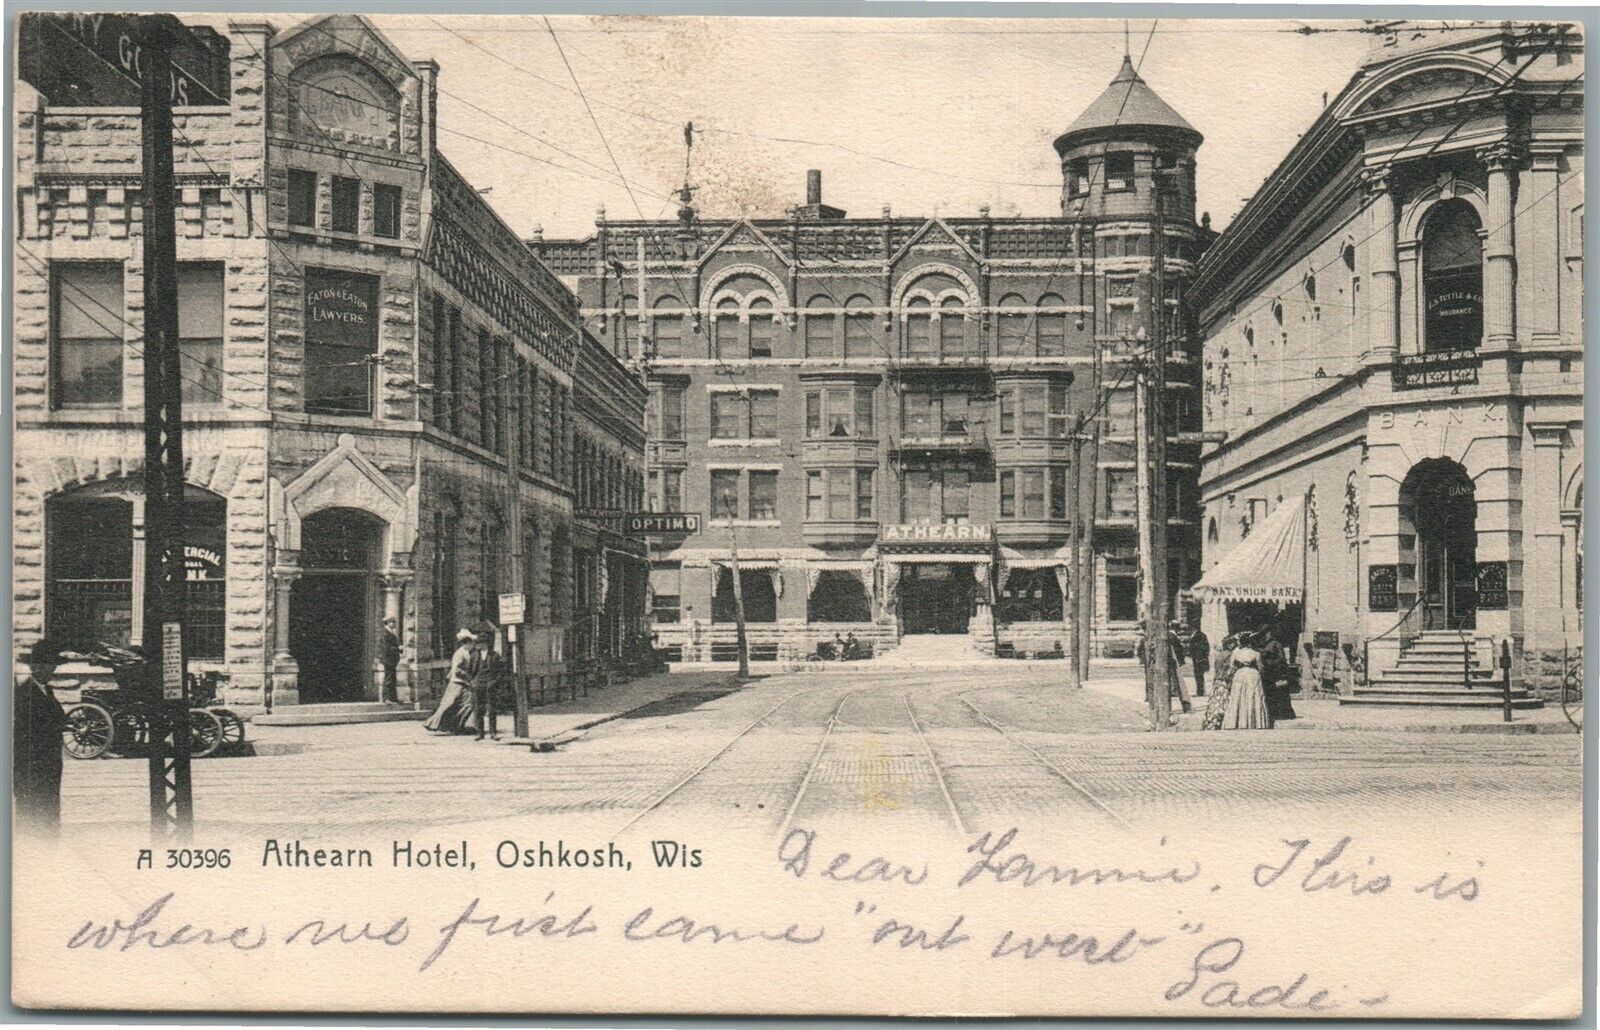 GOODS
EATON & EATON
LAWYERS.
OPTIMO
ATHEARN
BANK
BANK
L.S. TUTTLE & CO
INSURANCE
BANK
NAT. UNION BANK
A 30396 Athearn Hotel, Oshkosh, Wis
Dear Fannie. This is
where we first came "out west"
Sade-